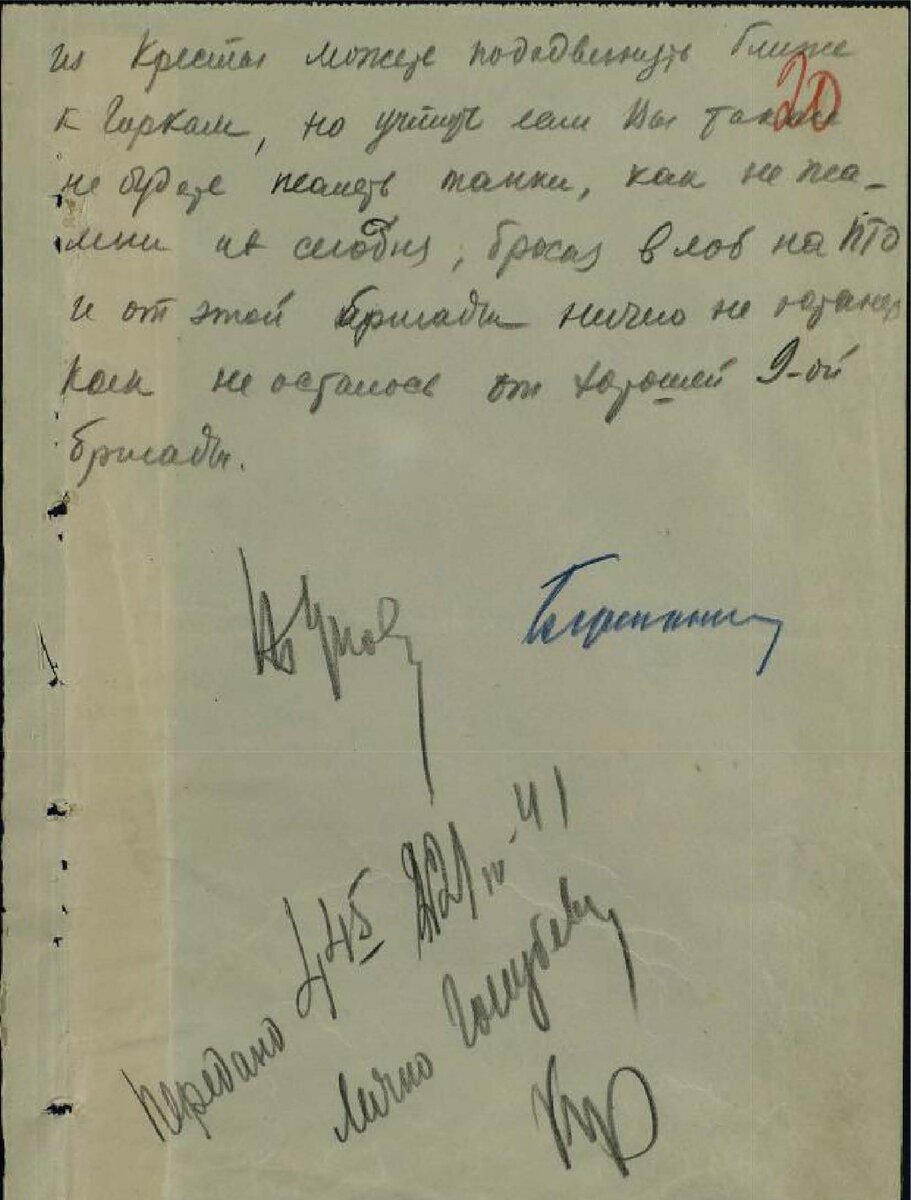 из Кресты можете пододвинуть ближе
20
к Горкам, но учтите если Вы также
не будете жалеть танки, как не жа-
лели их сегодня, бросая в лоб на ПТО
и от этой бригады ничего не останется
как не осталось от хорошей 9-ой
бригады.
Жуков
Булганин
Передано 4 45 21 41
Лично Голубеву